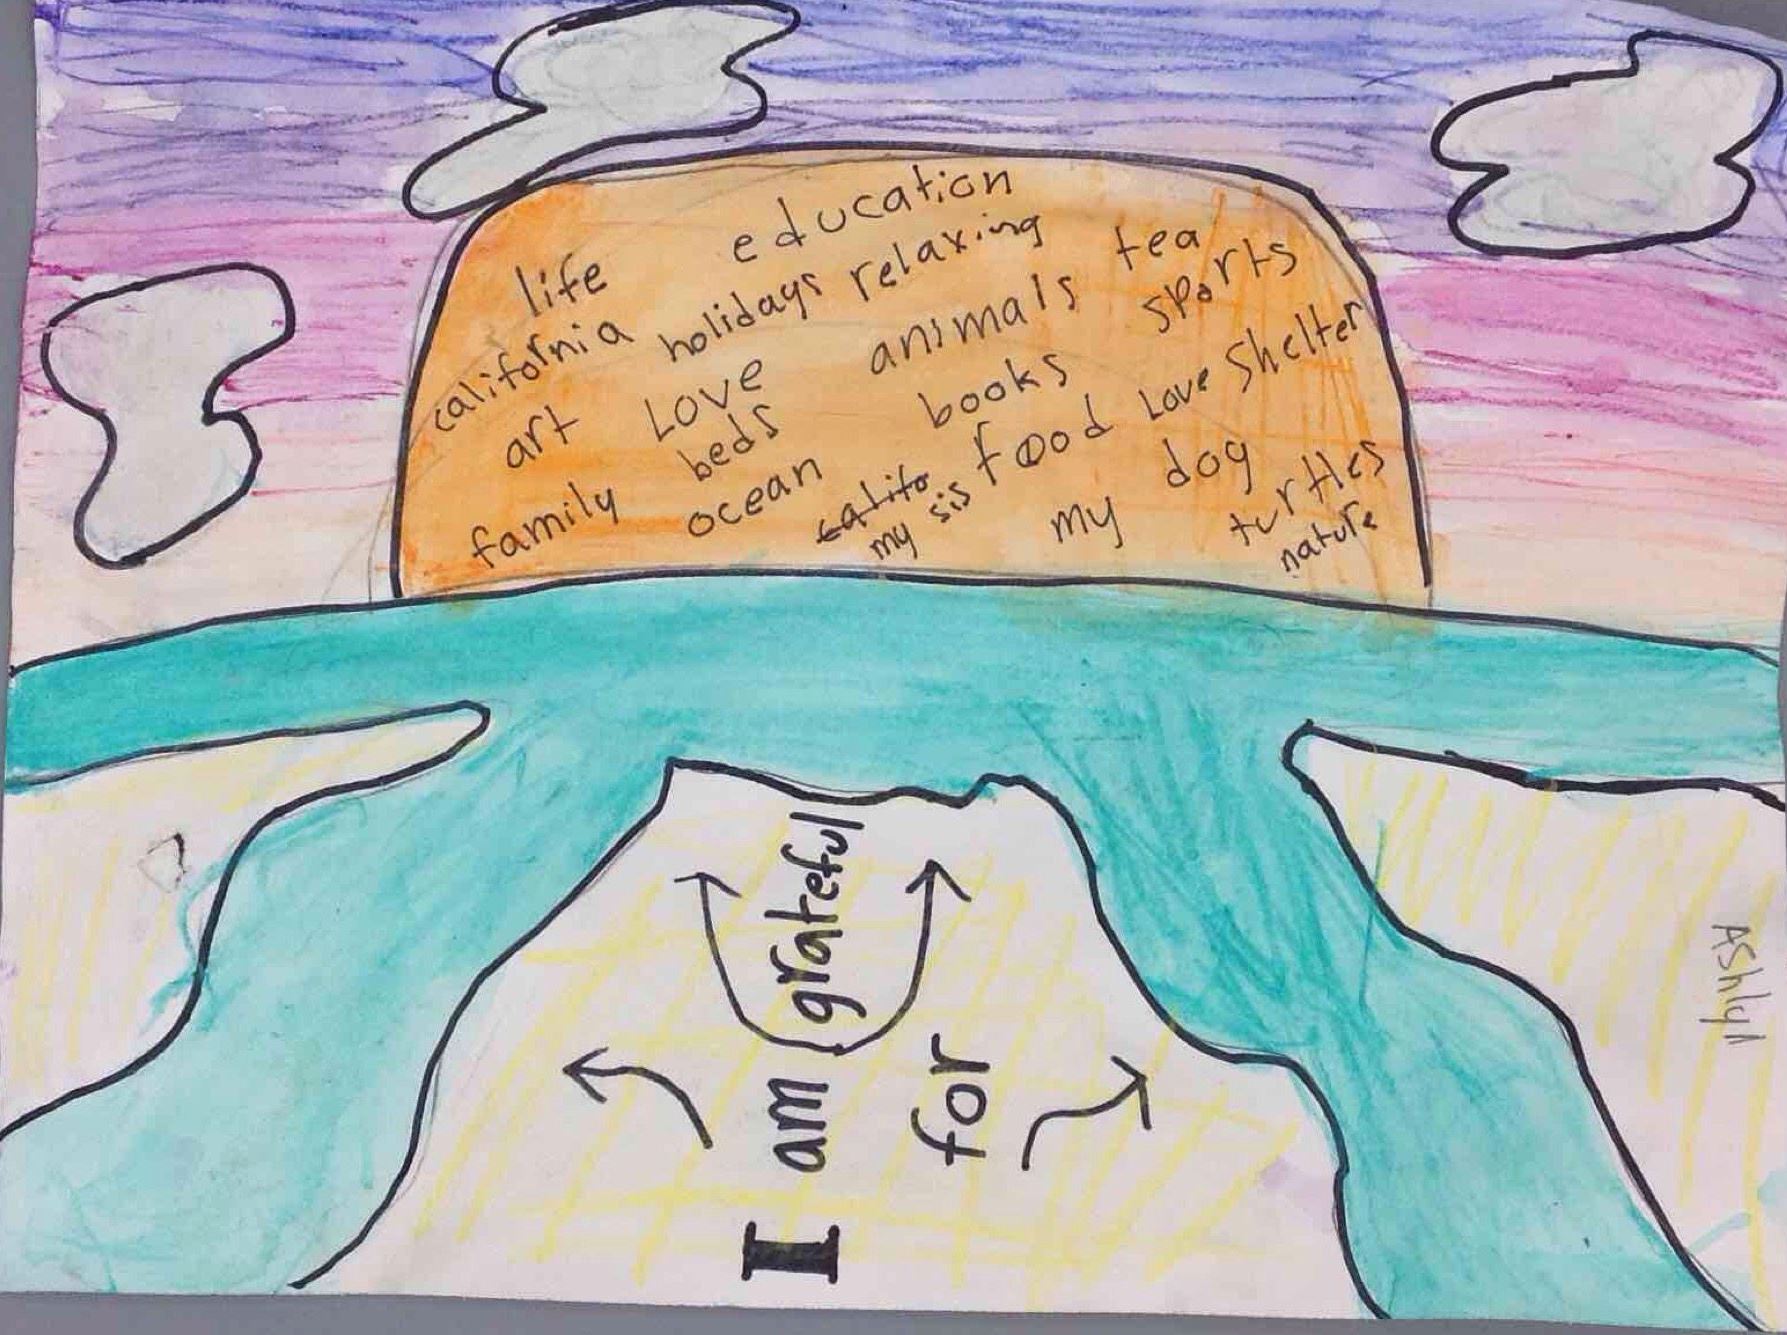 education
life
holidays relaxing
tea
sports
california
animals
art
Love
beds
books
Love Shelter
family
ocean
food
dog
califo
my sis
my
turtles
nature
I am grateful
for
Ashlyn